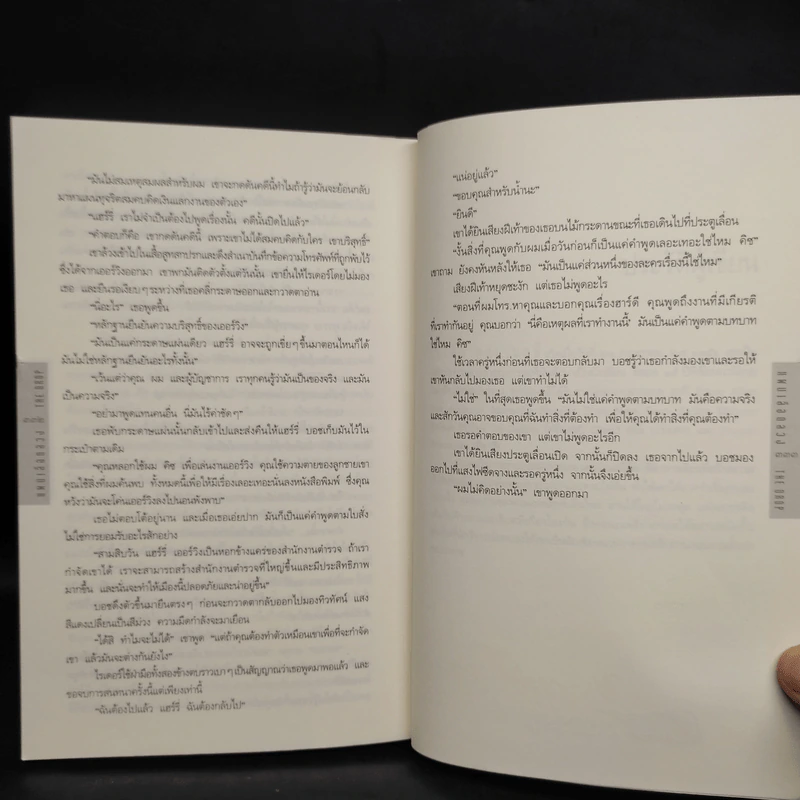 "มันไม่สมเหตุสมผลสำหรับผม เขาจะกดดันคดีนี้ทำไมถ้ารู้ว่ามันจะย้อนกลับ
มาหาแผนทุจริตสมคบคิดเงินแสกงานของตัวเอง"
"แฮร์รี่ เขาไม่จำเป็นต้องไปพูดเรื่องนั้น คดีนั้นปิดไปแล้ว"
"คำตอบก็คือ เขากดดันคดีนี้ เพราะเขาไม่ได้สมคบคิดกับใคร เขาบริสุทธิ์"
เขาล้วงเข้าไปในเสื้อสูทสาปรกและดึงสำเนาบันทึกข้อความโทรศัพท์ที่ถูกพับไว้
ซึ่งได้จากเออร์วิงออกมา เขาพกมันติดตัวตั้งแต่วันนั้น เขายื่นให้ไรเดอร์โดยไม่มอง
เธอ และยืนรอเงียบๆ ระหว่างที่เธอคลี่กระดาษออกและกวาดตาอ่าน
"นี่อะไร" เธอพูดขึ้น
"หลักฐานยืนยันความบริสุทธิ์ของเออร์วิง"
"มันเป็นแค่กระดาษแผ่นเดียว แฮร์รี่ อาจจะถูกเขี่ยๆ ขึ้นมาตอนไหนก็ได้
มันไม่ใช่หลักฐานยืนยันอะไรทั้งนั้น"
"เว้นแค่ว่าคุณ ผม และผู้บัญชาการ เราทุกคนรู้ว่ามันเป็นของจริง และมัน
เป็นความจริง"
"อย่ามาพูดแทนคนอื่น นี่มันไร้ค่าชัดๆ"
เธอพับกระดาษแผ่นนั้นกลับเข้าไปและส่งคืนให้แฮร์รี่ บอชเก็บมันไว้ใน
กระเป๋าตามเดิม
"คุณหลอกใช้ผม คิซ เพื่อเล่นงานเออร์วิง คุณใช้ความตายของลูกชายเขา
คุณใช้สิ่งที่ผมค้นพบ ทั้งหมดนี้เพื่อให้มีเรื่องเลอะเทอะนั่นลงหนังสือพิมพ์ ซึ่งคุณ
หวังว่ามันจะโค่นเออร์วิงลงไปนอนพังพาบ"
เธอไม่ตอบโต้อยู่นาน และเมื่อเธอเอ่ยปาก มันก็เป็นแค่คำพูดตามใบสั่ง
ไม่ใช่การยอมรับอะไรสักอย่าง
"สามสิบวัน แฮร์รี่ เออร์วิงเป็นหอกข้างแคร่ของสำนักงานตำรวจ ถ้าเรา
กำจัดเขาได้ เราจะสามารถสร้างสำนักงานตำรวจที่ใหญ่ขึ้นและมีประสิทธิภาพ
มากขึ้น และนั่นจะทำให้เมืองนี้ปลอดภัยและน่าอยู่ขึ้น"
บอชดึงตัวขึ้นมายืนตรงๆ ก่อนจะกวาดตากลับออกไปมองทิวทัศน์ แสง
สีแดงเปลี่ยนเป็นสีม่วง ความมืดกำลังจะมาเยือน
"ได้สิ ทำไมจะไม่ได้" เขาพูด "แต่ถ้าคุณต้องทำตัวเหมือนเขาเพื่อที่จะกำจัด
เขา แล้วมันจะต่างกันยังไง"
ไรเดอร์ใช้ฝ่ามือทั้งสองข้างตบราวเบาๆ เป็นสัญญาณว่าเธอพูดมาพอแล้ว และ
ขอจบการสนทนาครั้งนี้แต่เพียงเท่านี้
"ฉันต้องไปแล้ว แฮร์รี่ ฉันต้องกลับไป"
THE DROP
"แน่อยู่แล้ว"
"ขอบคุณสำหรับน้ำนะ"
"ยินดี"
เขาได้ยินเสียงฝีเท้าของเธอบนไม้กระดานขณะที่เธอเดินไปที่ประตูเลื่อน
"งั้นสิ่งที่คุณพูดกับผมเมื่อวันก่อนก็เป็นแค่คำพูดเลอะเทอะใช่ไหม คิซ"
เขาถาม ยังคงหันหลังให้เธอ "มันเป็นแค่ส่วนหนึ่งของละครเรื่องนี้ใช่ไหม"
เสียงฝีเท้าหยุดชะงัก แต่เธอไม่พูดอะไร
"ตอนที่ผมโทร.หาคุณและบอกคุณเรื่องฮาร์ดี คุณพูดถึงงานที่มีเกียรติ
ที่เราทำกันอยู่ คุณบอกว่า 'นี่คือเหตุผลที่เราทำงานนี้' มันเป็นแค่คำพูดตามบทบาท
ใช่ไหม คิซ"
ใช้เวลาครู่หนึ่งก่อนที่เธอจะตอบกลับมา บอชรู้ว่าเธอกำลังมองเขาและรอให้
เขาหันกลับไปมองเธอ แต่เขาทำไม่ได้
"ไม่ใช่" ในที่สุดเธอพูดขึ้น "มันไม่ใช่แค่คำพูดตามบทบาท มันคือความจริง
และสักวันคุณอาจขอบคุณที่ฉันทำสิ่งที่ต้องทำ เพื่อให้คุณได้ทำสิ่งที่คุณต้องทำ"
เธอรอคำตอบของเขา แต่เขาไม่พูดอะไรอีก
เขาได้ยินเสียงประตูเลื่อนเปิด จากนั้นก็ปิดลง เธอจากไปแล้ว บอชมอง
ออกไปที่แสงไฟซีดจางและรอครู่หนึ่ง จากนั้นจึงเอ่ยขึ้น
"ผมไม่คิดอย่างนั้น" เขาพูดออกมา
THE DROP